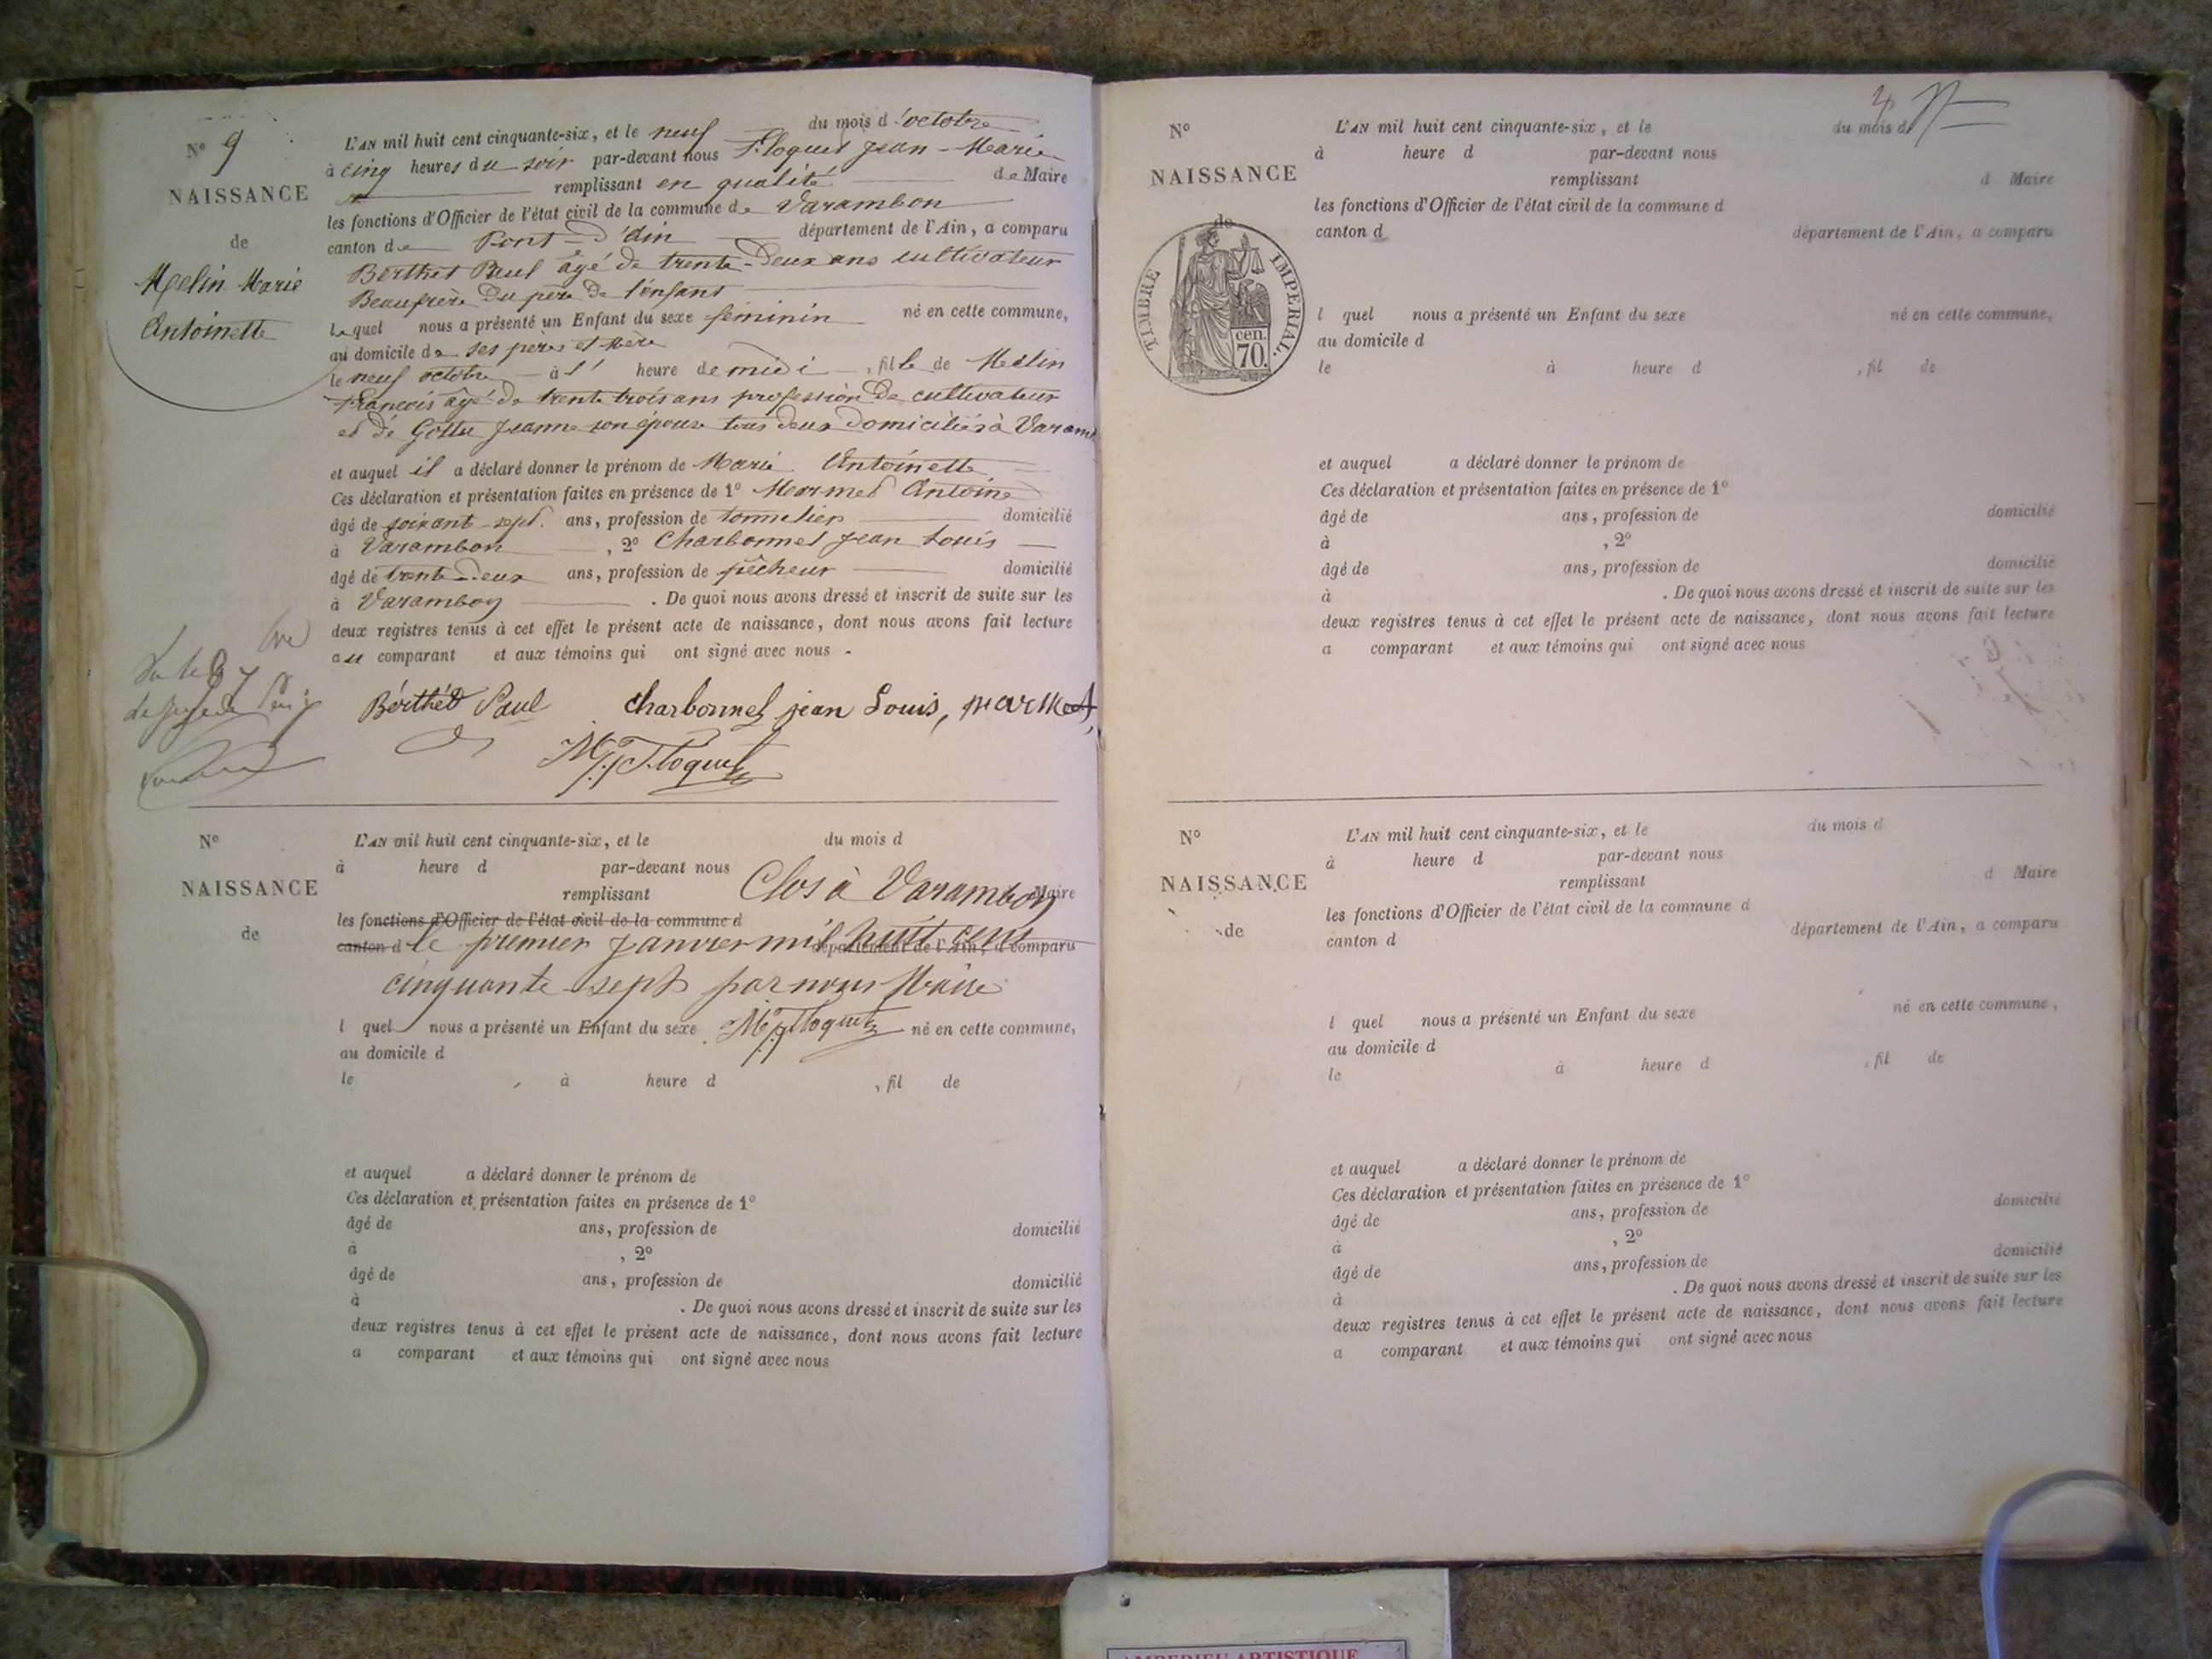 N° 9
NAISSANCE
de
Melin Marie
Antoinette
L'AN mil huit cent cinquante-six, et le neuf du mois d'octobre
à cinq heures du soir par-devant nous Floquet Jean-Marie
remplissant en qualité de Maire
les fonctions d'Officier de l'état civil de la commune de Varambon
canton de Pont-d'ain département de l'Ain, a comparu
Berthet Paul âgé de trente-deux ans cultivateur
Beaufrère du père de l'enfant
lequel nous a présenté un Enfant du sexe féminin né en cette commune,
au domicile de ses pères et mère
le neuf octobre à l' heure de midi, fille de Melin
François âgé de trente trois ans profession de cultivateur
et de Gottu Jeanne son épouse tous deux domiciliés à
et auquel il a déclaré donner le prénom de Marie Antoinette
Ces déclaration et présentation faites en présence de 1° Marmet Antoine
âgé de soixant-sept. ans, profession de tonnelier domicilié
à Varambon, 2° Charbonnet Jean Louis
âgé de trente-deux ans, profession de pêcheur domicilié
à Varambon. De quoi nous avons dressé et inscrit de suite sur les
deux registres tenus à cet effet le présent acte de naissance, dont nous avons fait lecture
au comparant et aux témoins qui ont signé avec nous.
Berthet Paul charbonnet jean Louis, marmet,
Floquet
N°
NAISSANCE
de
L'AN mil huit cent cinquante-six, et le du mois d
à heure d par-devant nous
remplissant Maire
Clos à Varambon
les fonctions d'Officier de l'état civil de la commune d
canton d département de l'Ain, a comparu
le premier janvier mil huit cent
cinquante-sept par nous Maire
l quel nous a présenté un Enfant du sexe né en cette commune,
Floquet
au domicile d
le , à heure d , fil de
et auquel a déclaré donner le prénom de
Ces déclaration et présentation faites en présence de 1°
âgé de ans, profession de domicilié
à , 2°
âgé de ans, profession de domicilié
à . De quoi nous avons dressé et inscrit de suite sur les
deux registres tenus à cet effet le présent acte de naissance, dont nous avons fait lecture
a comparant et aux témoins qui ont signé avec nous
N°
NAISSANCE
de
TIMBRE IMPERIAL.
cen.
70.
L'AN mil huit cent cinquante-six, et le du mois d
à heure d par-devant nous
remplissant d Maire
les fonctions d'Officier de l'état civil de la commune d
canton d département de l'Ain, a comparu
l quel nous a présenté un Enfant du sexe né en cette commune,
au domicile d
le à heure d , fil de
et auquel a déclaré donner le prénom de
Ces déclaration et présentation faites en présence de 1°
âgé de ans, profession de domicilié
à , 2°
âgé de ans, profession de domicilié
à . De quoi nous avons dressé et inscrit de suite sur les
deux registres tenus à cet effet le présent acte de naissance, dont nous avons fait lecture
a comparant et aux témoins qui ont signé avec nous
N°
NAISSANCE
de
L'AN mil huit cent cinquante-six, et le du mois d
à heure d par-devant nous
remplissant d Maire
les fonctions d'Officier de l'état civil de la commune d
canton d département de l'Ain, a comparu
l quel nous a présenté un Enfant du sexe né en cette commune,
au domicile d
le à heure d , fil de
et auquel a déclaré donner le prénom de
Ces déclaration et présentation faites en présence de 1°
âgé de ans, profession de domicilié
à , 2°
âgé de ans, profession de domicilié
à . De quoi nous avons dressé et inscrit de suite sur les
deux registres tenus à cet effet le présent acte de naissance, dont nous avons fait lecture
a comparant et aux témoins qui ont signé avec nous
AMBERIEU ARTISTIQUE